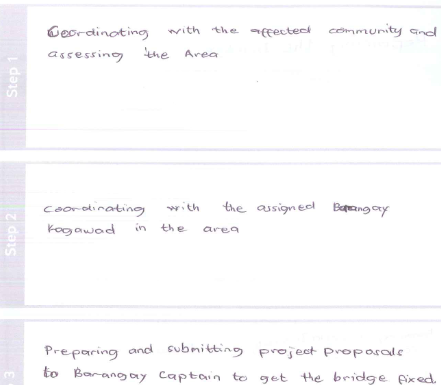 Step 1
Coordinating with the affected community and
assessing the Area
Step 2
coordinating with the assigned Barangay
Kagawad in the area
3
Preparing and submitting project proposals
to Barangay Captain to get the bridge fixed.